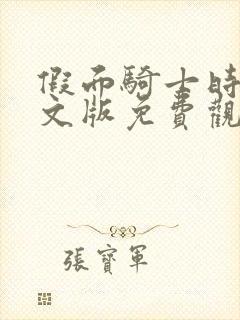 假而騎士時
文版免費觀
張寶軍